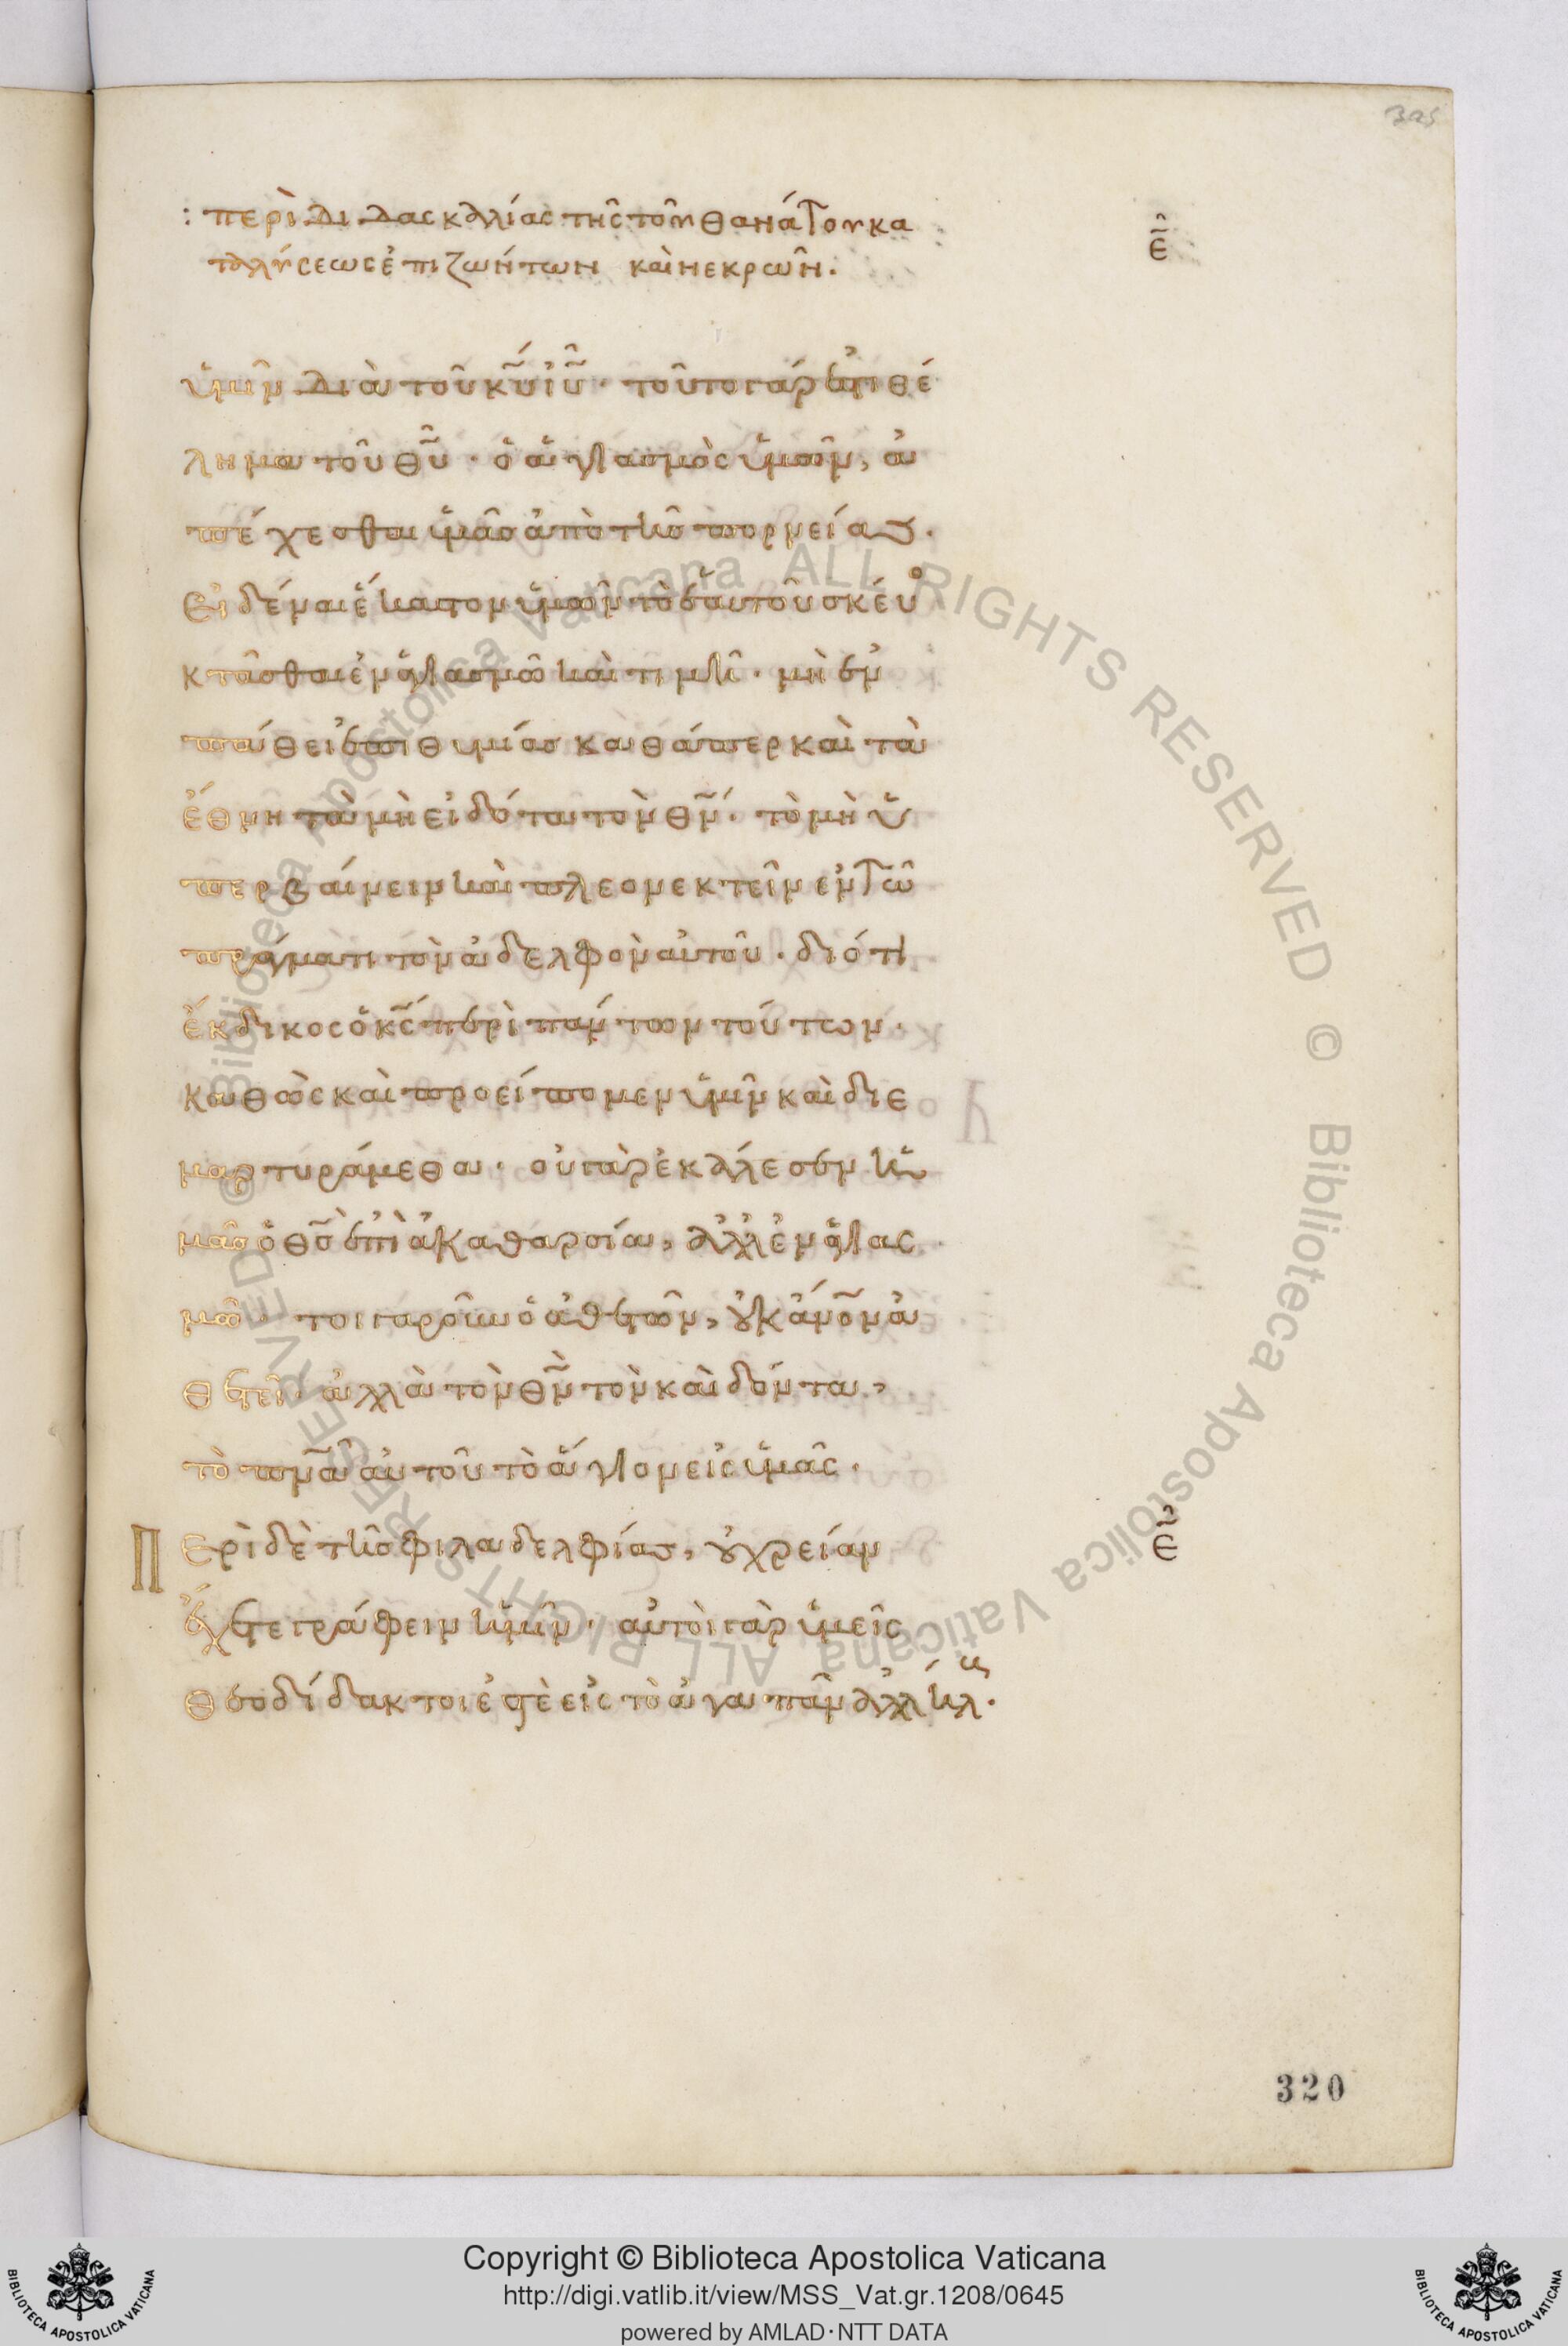 325
: περὶ διδασκαλίας τῆς τοῦ θανάτου κα
ταλύσεως ἐπι ζώντων καὶ νεκρῶν.
ε̄
ὑμῖν διὰ τοῦ κ̅υ̅ ἰ̅υ̅· τοῦτο γάρ ἐστι θέ
λημα τοῦ θ̅υ̅· ὁ ἁγιασμὸς ὑμῶν, ἀ
πέχεσθαι ὑμᾶς ἀπὸ τῆς πορνείας.
Εἰδέναι ἕκαστον ὑμῶν τὸ ἑαυτοῦ σκεύο
κτᾶσθαι ἐν ἁγιασμῶ καὶ τιμῆ· μὴ ἐν
πάθει ἐπιθυμίας καθάπερ καὶ τὰ
ἔθνη τὰ μὴ εἰδότα τὸν θ̅ν̅· τὸ μὴ ὑ
περβαίνειν καὶ πλεονεκτεῖν ἐν τῶ
πράγματι τὸν ἀδελφὸν αὐτοῦ· διότι
ἔκδικος ὁ κ̅ς̅ περὶ πάντων τούτων.
καθὼς καὶ προείπομεν ὑμῖν καὶ διε
μαρτυράμεθα· οὐ γὰρ ἐκάλεσεν ἡ
μᾶς ὁ θ̅ς̅ ἐπὶ ἀκαθαρσία, ἀλλ' ἐν ἁγιασ
μῶ· τοιγαροῦν ὁ ἀθετῶν, οὐκ ἀ̅ν̅ο̅ν̅ ἀ
θετεῖ· ἀλλὰ τὸν θ̅ν̅ τὸν καὶ δόντα,
τὸ π̅ν̅α̅ αὐτοῦ τὸ ἅγιον εἰς ὑμᾶς.
Περὶ δὲ τῆς φιλαδελφίας, οὐ χρείαν
ε̄
ἔχετε γράφειν ὑμῖν· αὐτοὶ γὰρ ὑμεῖς
θεοδίδακτοι ἐστὲ εἰς τὸ ἀγαπᾶν ἀλλήλους.
320
Copyright © Biblioteca Apostolica Vaticana
http://digi.vatlib.it/view/MSS_Vat.gr.1208/0645
powered by AMLAD·NTT DATA
BIBLIOTECA APOSTOLICA VATICANA
BIBLIOTECA APOSTOLICA VATICANA
© Biblioteca Apostolica Vaticana ALL RIGHTS RESERVED © Biblioteca Apostolica Vaticana ALL RIGHTS RESERVED